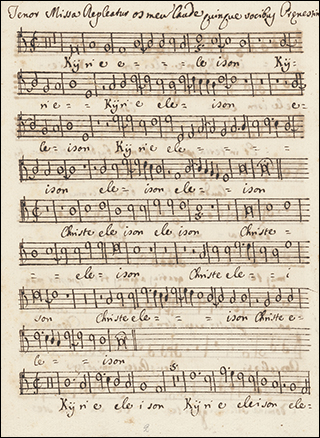 Tenor Missa Repleatur os meu Laude quinque vocibus Prenestin
Kÿrie e = = = le ison Kÿ=
ri e = = = Kÿrie ele = ison e=
le = ison Kÿrie ele = = = =
ison ele = ison ele = ison
Christe ele ison ele ison Christe =
= ele = ison Christe ele = i
son Christe ele = = = ison Christe e =
le = ison
Kÿrie e ele ison Kÿrie ele ison ele=